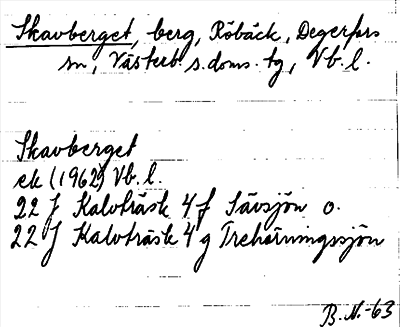 Skavberget, berg, Röbäck, Degerfors
sn, Västerb. s. doms. tg, Vb. l.
Skavberget
ek (1962) Vb. l.
22 J Kalvträsk 4 f Sävsjön o.
22 J Kalvträsk 4 g Trehörningssjön
B. N.-63